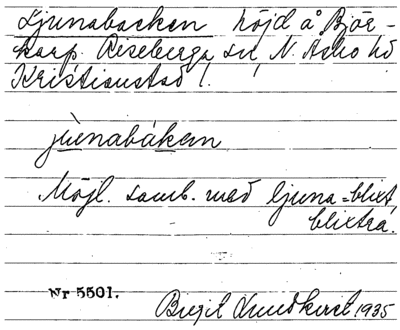 Ljunabacken höjd å Björ-
karp Riseberga sn, N. Åsbo hd
Kristianstad l.
jùnabákan
Möjl. samb. med ljuna = blixt,
blixtra.
Nr 5501.
Birgit Lundkvist 1935